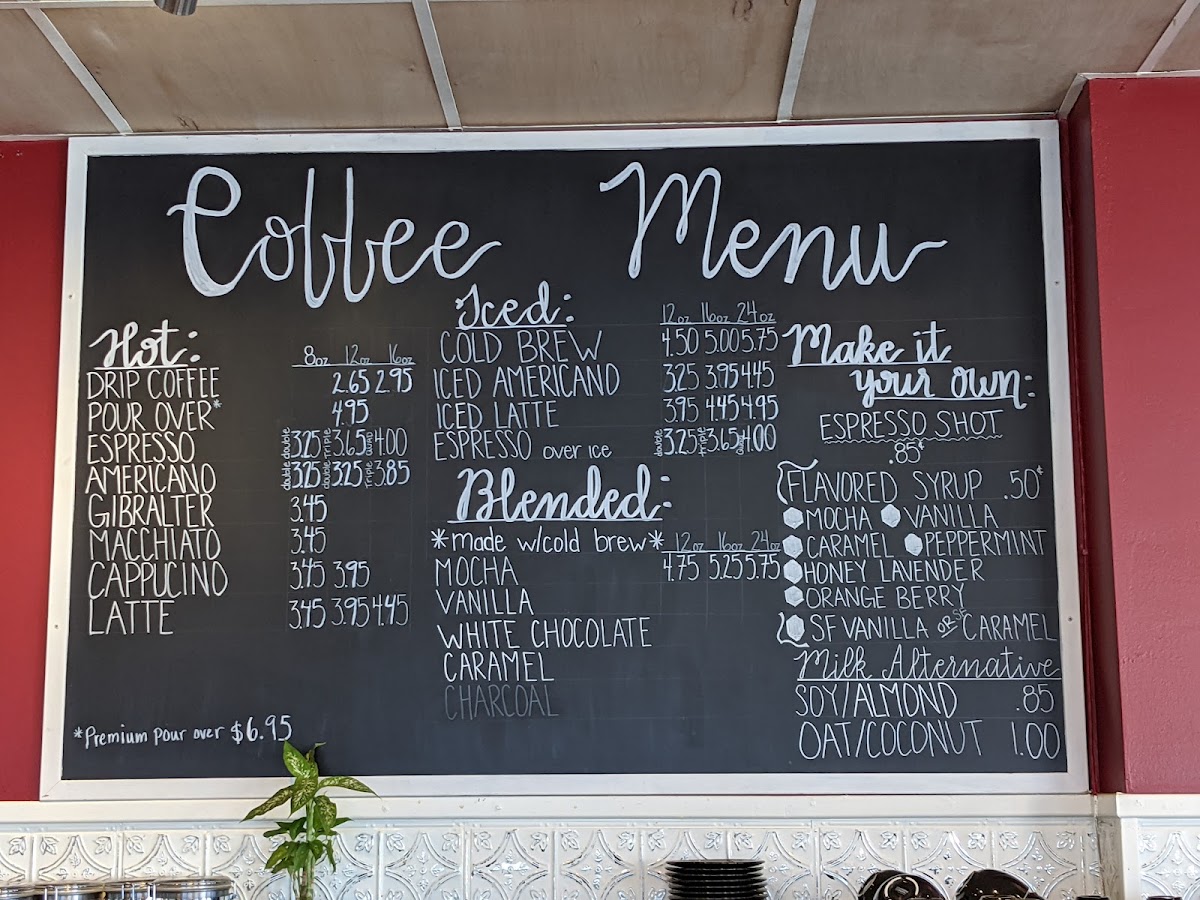 Coffee Menu
Hot:
8oz 12oz 16oz
DRIP COFFEE 2.65 2.95
POUR OVER* 4.95
ESPRESSO double 3.25 Triple 3.65 QUAD 4.00
AMERICANO double 3.25 double 3.25 Triple 3.85
GIBRALTER 3.45
MACCHIATO 3.45
CAPPUCINO 3.45 3.95
LATTE 3.45 3.95 4.45
*Premium pour over $6.95
Iced:
12oz 16oz 24oz
COLD BREW 4.50 5.00 5.75
ICED AMERICANO 3.25 3.95 4.45
ICED LATTE 3.95 4.45 4.95
ESPRESSO over ice double 3.25 triple 3.65 Quad 4.00
Blended:
*made w/cold brew* 12oz 16oz 24oz
MOCHA 4.75 5.25 5.75
VANILLA
WHITE CHOCOLATE
CARAMEL
CHARCOAL
Make it
your own:
ESPRESSO SHOT
.85¢
FLAVORED SYRUP .50¢
MOCHA VANILLA
CARAMEL PEPPERMINT
HONEY LAVENDER
ORANGE BERRY
SF VANILLA OR SF CARAMEL
Milk Alternative
SOY/ALMOND .85
OAT/COCONUT 1.00